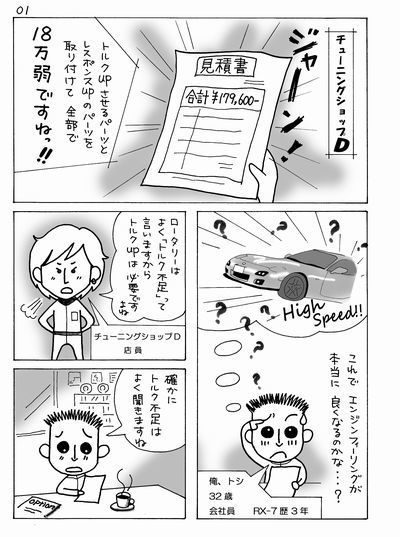 01
チューニングショップD
ジャーン!
見積書
合計¥179,600-
トルクupさせるパーツと
レスポンスupのパーツを
取り付けて 全部で
18万弱ですねっ!!
High
Speed!!
これで エンジンフィーリングが
本当に 良くなるのかな・・・?
俺、トシ
32歳
会社員 RX-7歴3年
ロータリーは
よく「トルク不足」って
言いますから
トルクupは必要です
よね
チューニングショップD
店員
確かに
トルク不足は
よく聞きますね
option